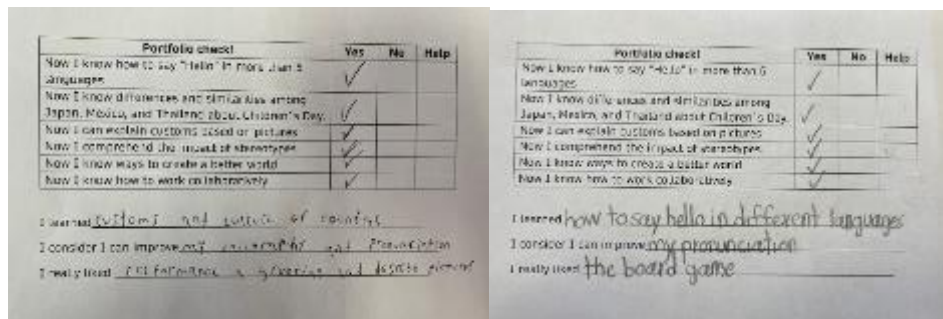 Portfolio check! Yes No Help
Now I know how to say "Hello" in more than 5
languages
Now I know differences and similarities among
Japan, Mexico, and Thailand about Children's Day.
Now I can explain customs based on pictures
Now I comprehend the impact of stereotypes
Now I know ways to create a better world
Now I know how to work collaboratively
I learned customs and culture of
I consider I can improve my and Pronunciation
I really liked performance a greeting and describe pictures
Portfolio check! Yes No Help
Now I know how to say "Hello" in more than 5
languages
Now I know differences and similarities among
Japan, Mexico, and Thailand about Children's Day.
Now I can explain customs based on pictures
Now I comprehend the impact of stereotypes
Now I know ways to create a better world
Now I know how to work collaboratively
I learned how to say hello in different languages
I consider I can improve my pronunciation
I really liked the board game